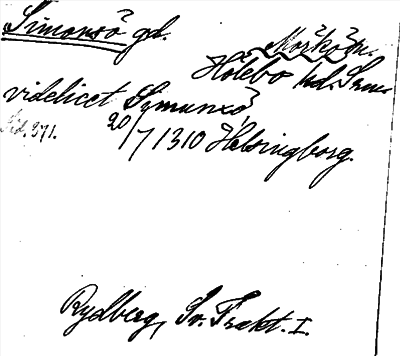 Simonsö gd.
Mörkö sn.
Hölebo hd. Srm.
videlicet Symunxö
Sid. 371.
20/7 1310 Helsingborg.
Rydberg, Sv. Trakt. I.